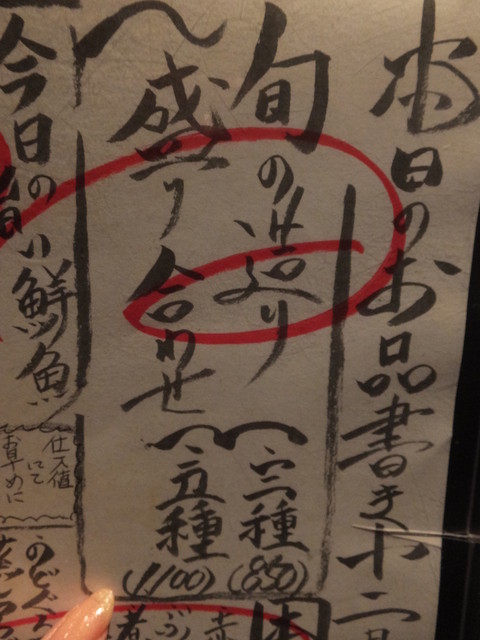 本日のお品書き十二月
旬の造り
盛り合わせ
三種(850)
五種(1100)
今日の旨い鮮魚
仕入値
にて
お早めに
のどぐろ